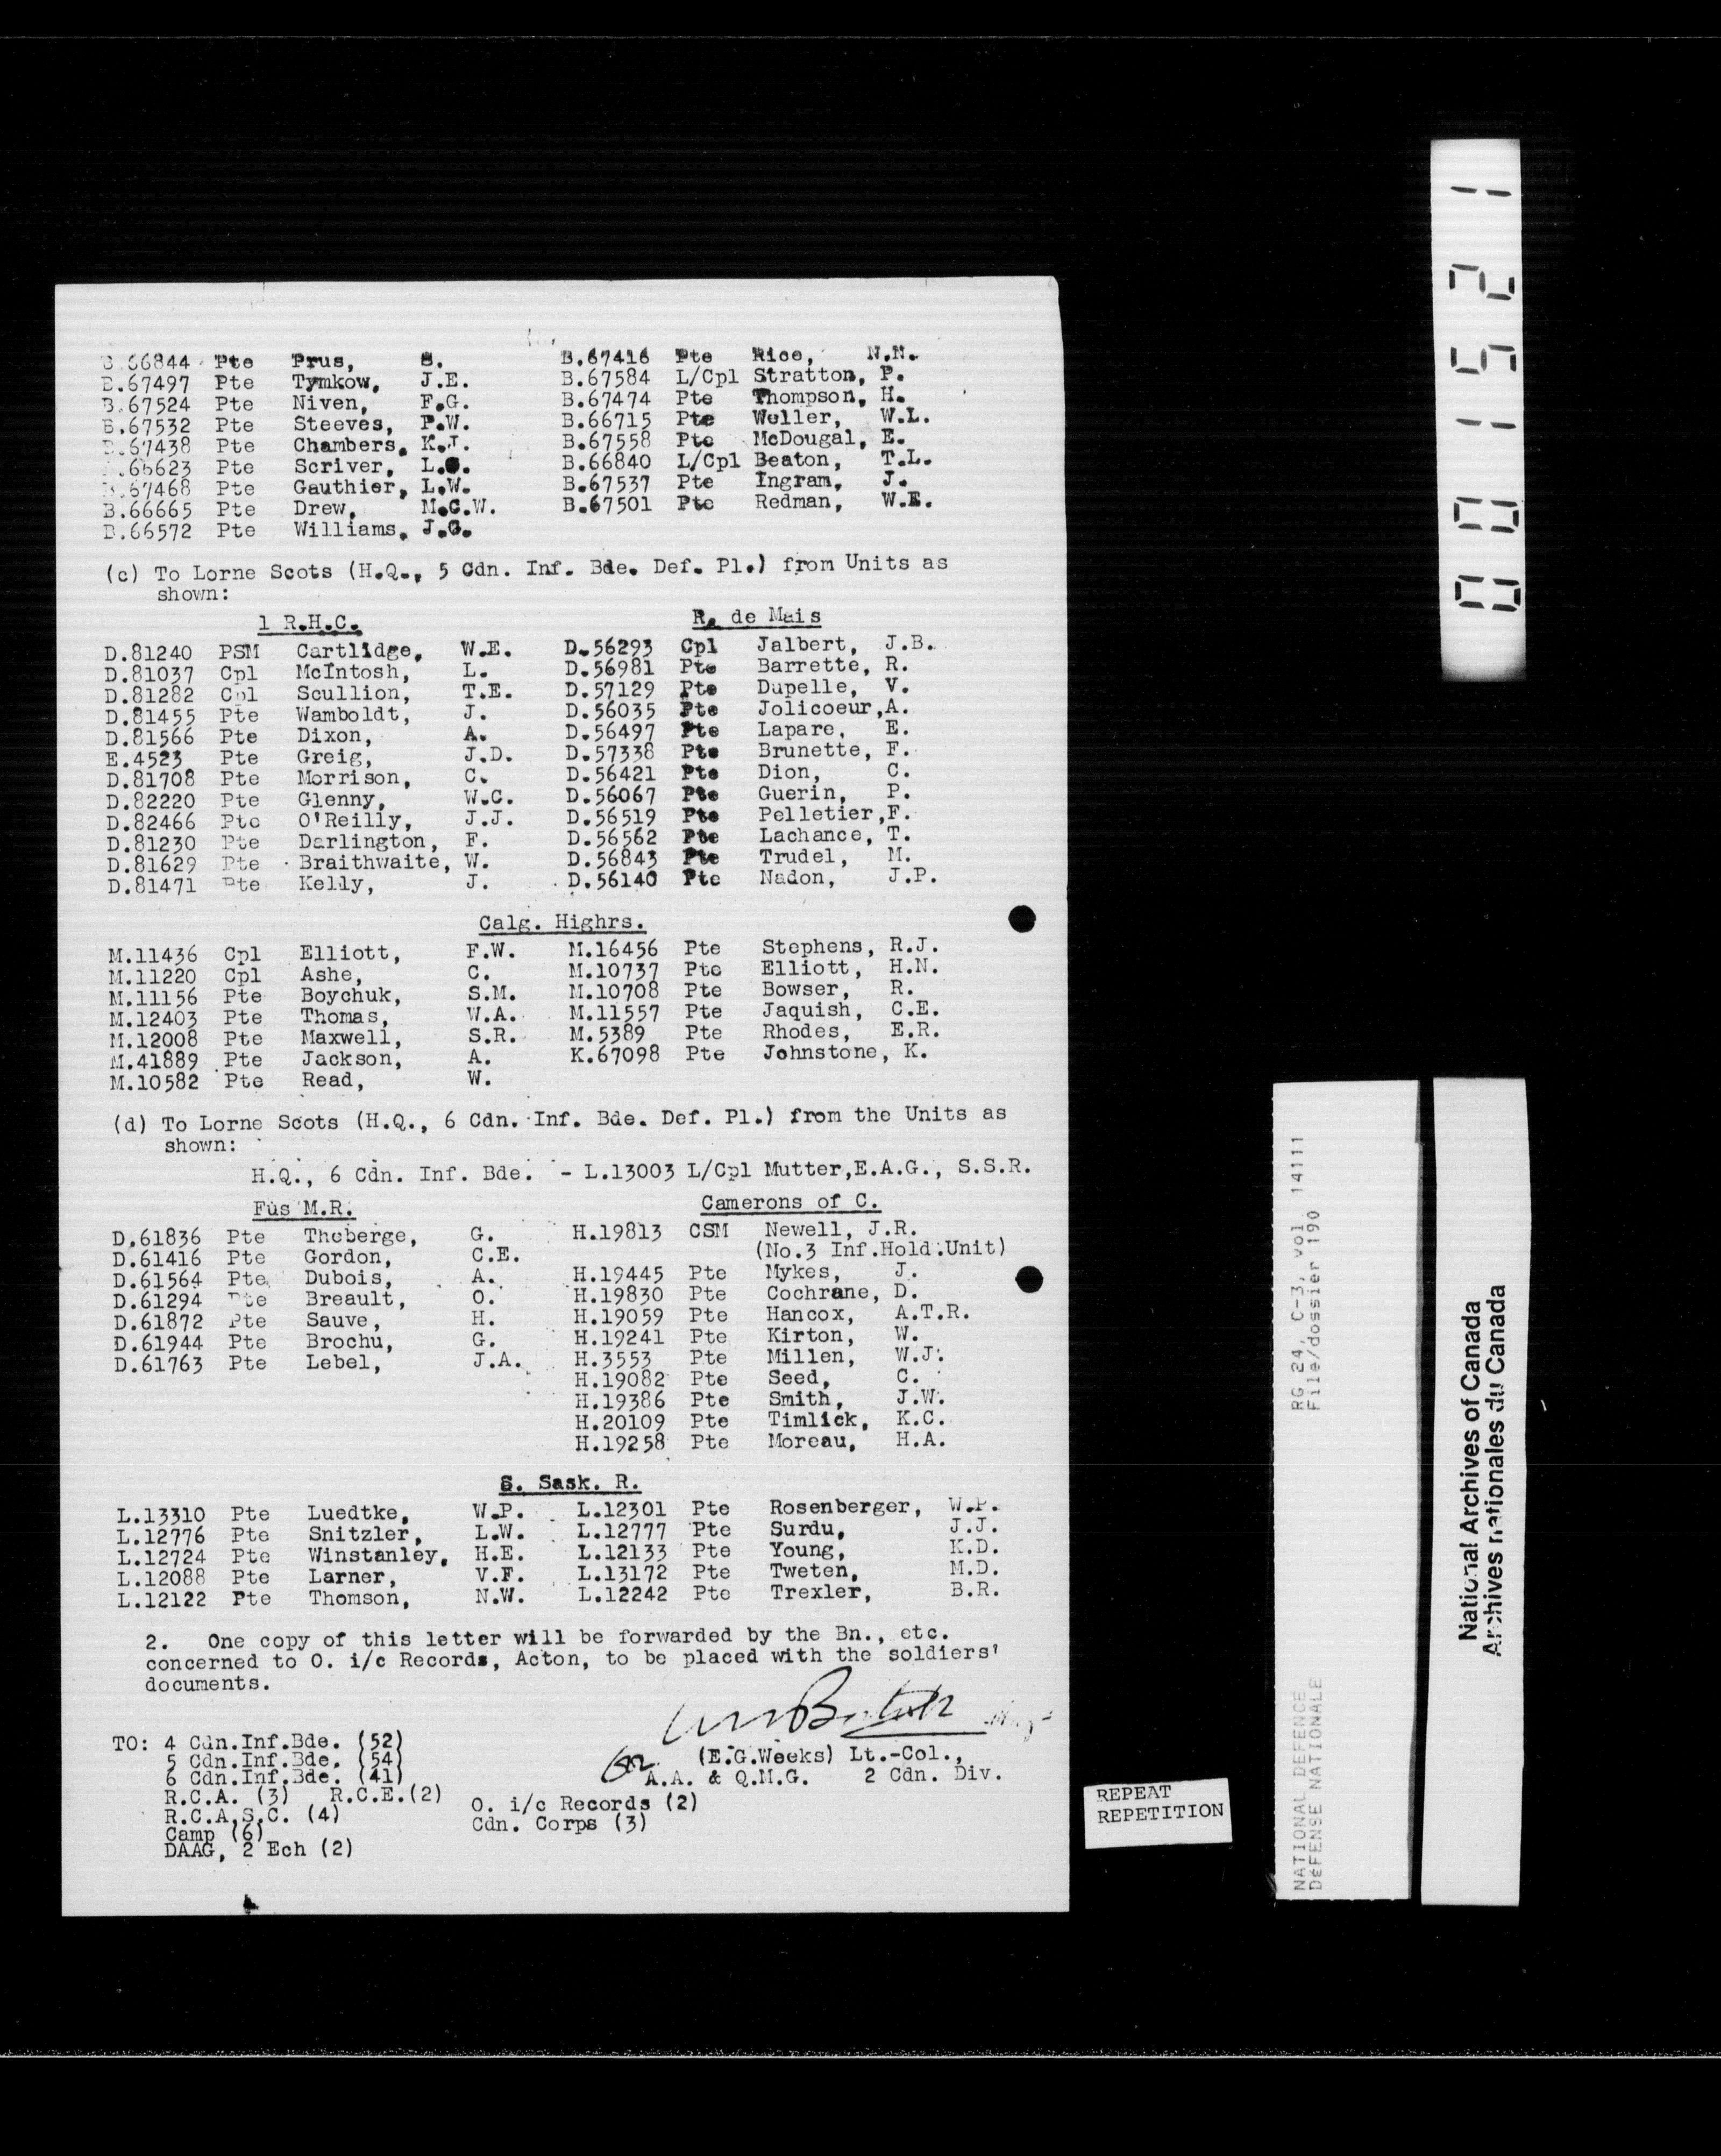 B.66844 Pte Prus, S. B.67416 Pte Rice, N.N.
B.67497 Pte Tymkow, J.E. B.67584 L/Cpl Stratton, P.
B.67524 Pte Niven, F.G. B.67474 Pte Thompson, H.
B.67532 Pte Steeves, P.W. B.66715 Pte Weller, W.L.
B.67438 Pte Chambers, K.J. B.67558 Pte McDougal, E.
.66623 Pte Scriver, L. B.66840 L/Cpl Beaton, T.L.
B.67468 Pte Gauthier, L.W. B.67537 Pte Ingram, J.
B.66665 Pte Drew, M.C.W. B.67501 Pte Redman, W.E.
B.66572 Pte Williams, J.G.
(c) To Lorne Scots (H.Q., 5 Cdn. Inf. Bde. Def. Pl.) from Units as
shown:
1 R.H.C. R. de Mais
D.81240 PSM Cartlidge, W.E. D.56293 Cpl Jalbert, J.B.
D.81037 Cpl McIntosh, L. D.56981 Pte Barrette, R.
D.81282 Cpl Scullion, T.E. D.57129 Pte Dupelle, V.
D.81455 Pte Wamboldt, J. D.56035 Pte Jolicoeur,A.
D.81566 Pte Dixon, A. D.56497 Pte Lapare, E.
E.4523 Pte Greig, J.D. D.57338 Pte Brunette, F.
D.81708 Pte Morrison, C. D.56421 Pte Dion, C.
D.82220 Pte Glenny, W.C. D.56067 Pte Guerin, P.
D.82466 Pte O'Reilly, J.J. D.56519 Pte Pelletier,F.
D.81230 Pte Darlington, F. D.56562 Pte Lachance, T.
D.81629 Pte Braithwaite, W. D.56843 Pte Trudel, M.
D.81471 Pte Kelly, J. D.56140 Pte Nadon, J.P.
Calg. Highrs.
M.11436 Cpl Elliott, F.W. M.16456 Pte Stephens, R.J.
M.11220 Cpl Ashe, C. M.10737 Pte Elliott, H.N.
M.11156 Pte Boychuk, S.M. M.10708 Pte Bowser, R.
M.12403 Pte Thomas, W.A. M.11557 Pte Jaquish, C.E.
M.12008 Pte Maxwell, S.R. M.5389 Pte Rhodes, E.R.
M.41889 Pte Jackson, A. K.67098 Pte Johnstone, K.
M.10582 Pte Read, W.
(d) To Lorne Scots (H.Q., 6 Cdn. Inf. Bde. Def. Pl.) from the Units as
shown:
H.Q., 6 Cdn. Inf. Bde. - L.13003 L/Cpl Mutter,E.A.G., S.S.R.
Fus M.R. Camerons of C.
D.61836 Pte Theberge, G. H.19813 CSM Newell, J.R.
D.61416 Pte Gordon, C.E. (No.3 Inf.Hold.Unit)
D.61564 Pte Dubois, A. H.19445 Pte Mykes, J.
D.61294 Pte Breault, O. H.19830 Pte Cochrane, D.
D.61872 Pte Sauve, H. H.19059 Pte Hancox, A.T.R.
D.61944 Pte Brochu, G. H.19241 Pte Kirton, W.
D.61763 Pte Lebel, J.A. H.3553 Pte Millen, W.J.
H.19082 Pte Seed, C.
H.19386 Pte Smith, J.W.
H.20109 Pte Timlick, K.C.
H.19258 Pte Moreau, H.A.
S. Sask. R.
L.13310 Pte Luedtke, W.P. L.12301 Pte Rosenberger, W.P.
L.12776 Pte Snitzler, L.W. L.12777 Pte Surdu, J.J.
L.12724 Pte Winstanley, H.E. L.12133 Pte Young, K.D.
L.12088 Pte Larner, V.F. L.13172 Pte Tweten, M.D.
L.12122 Pte Thomson, N.W. L.12242 Pte Trexler, B.R.
2. One copy of this letter will be forwarded by the Bn., etc.
concerned to O. i/c Records, Acton, to be placed with the soldiers'
documents.
TO: 4 Cdn.Inf.Bde. (52)
5 Cdn.Inf.Bde. (54) (E.G.Weeks) Lt.-Col.,
6 Cdn.Inf.Bde. (41) A.A. & Q.M.G. 2 Cdn. Div.
R.C.A. (3) R.C.E.(2)
R.C.A.S.C. (4) O. i/c Records (2)
Camp (6) Cdn. Corps (3)
DAAG, 2 Ech (2)
REPEAT
REPETITION
001521
NATIONAL DEFENCE RG 24, C-3, vol. 14111
DéFENSE NATIONALE File/dossier 190
National Archives of Canada
Archives nationales du Canada